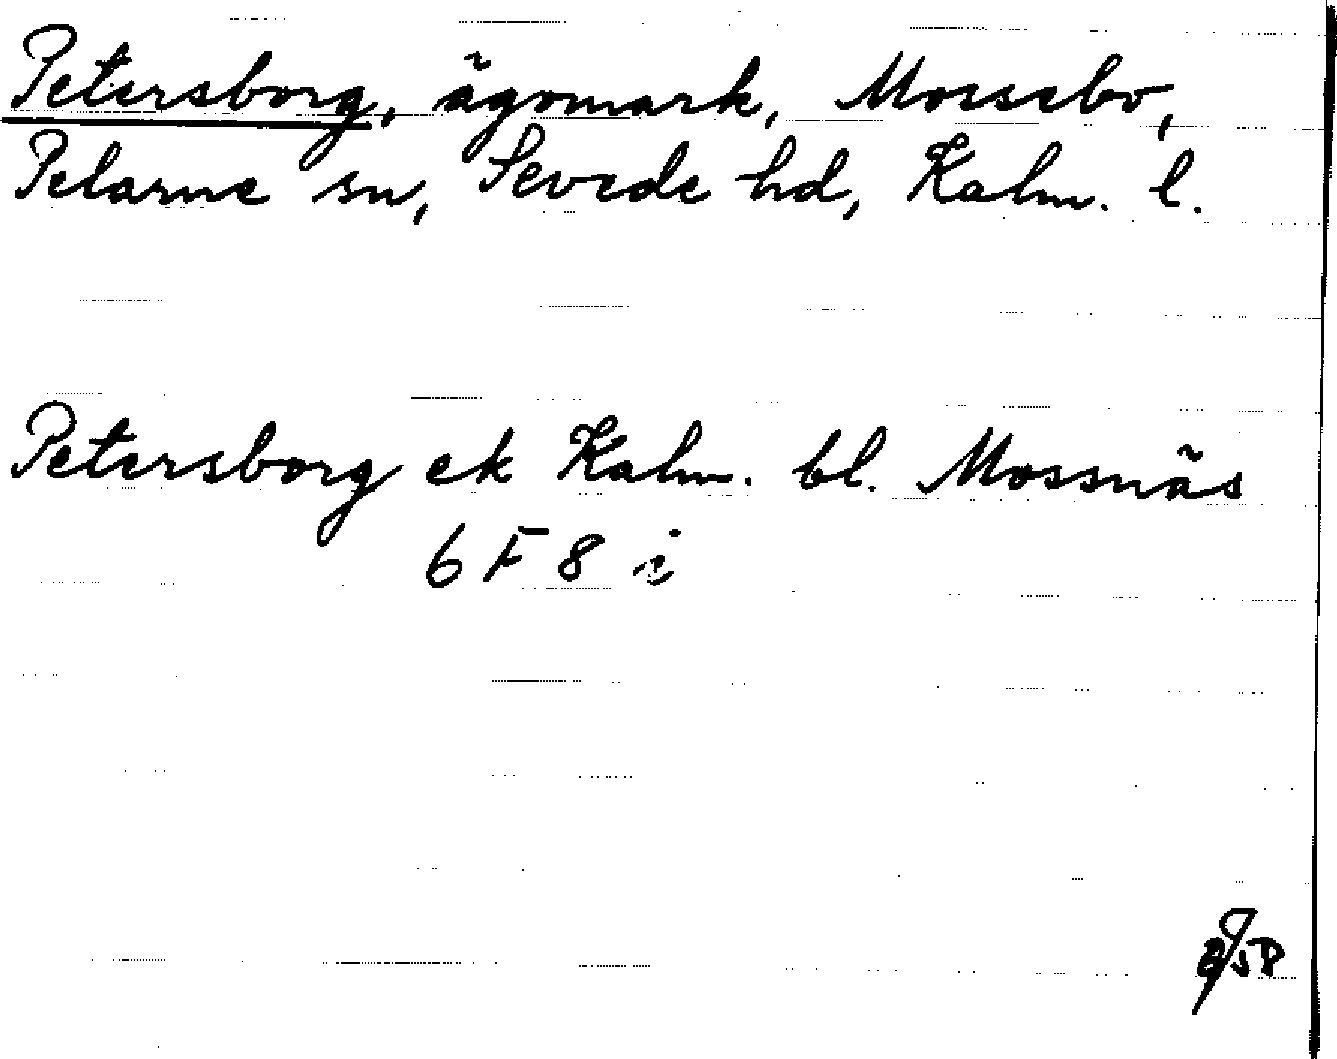 Petersborg, ägomark, Mossebo,
Pelarne sn, Sevede hd, Kalm. l.
Petersborg ek Kalm. bl. Mossnäs
6 F 8 i